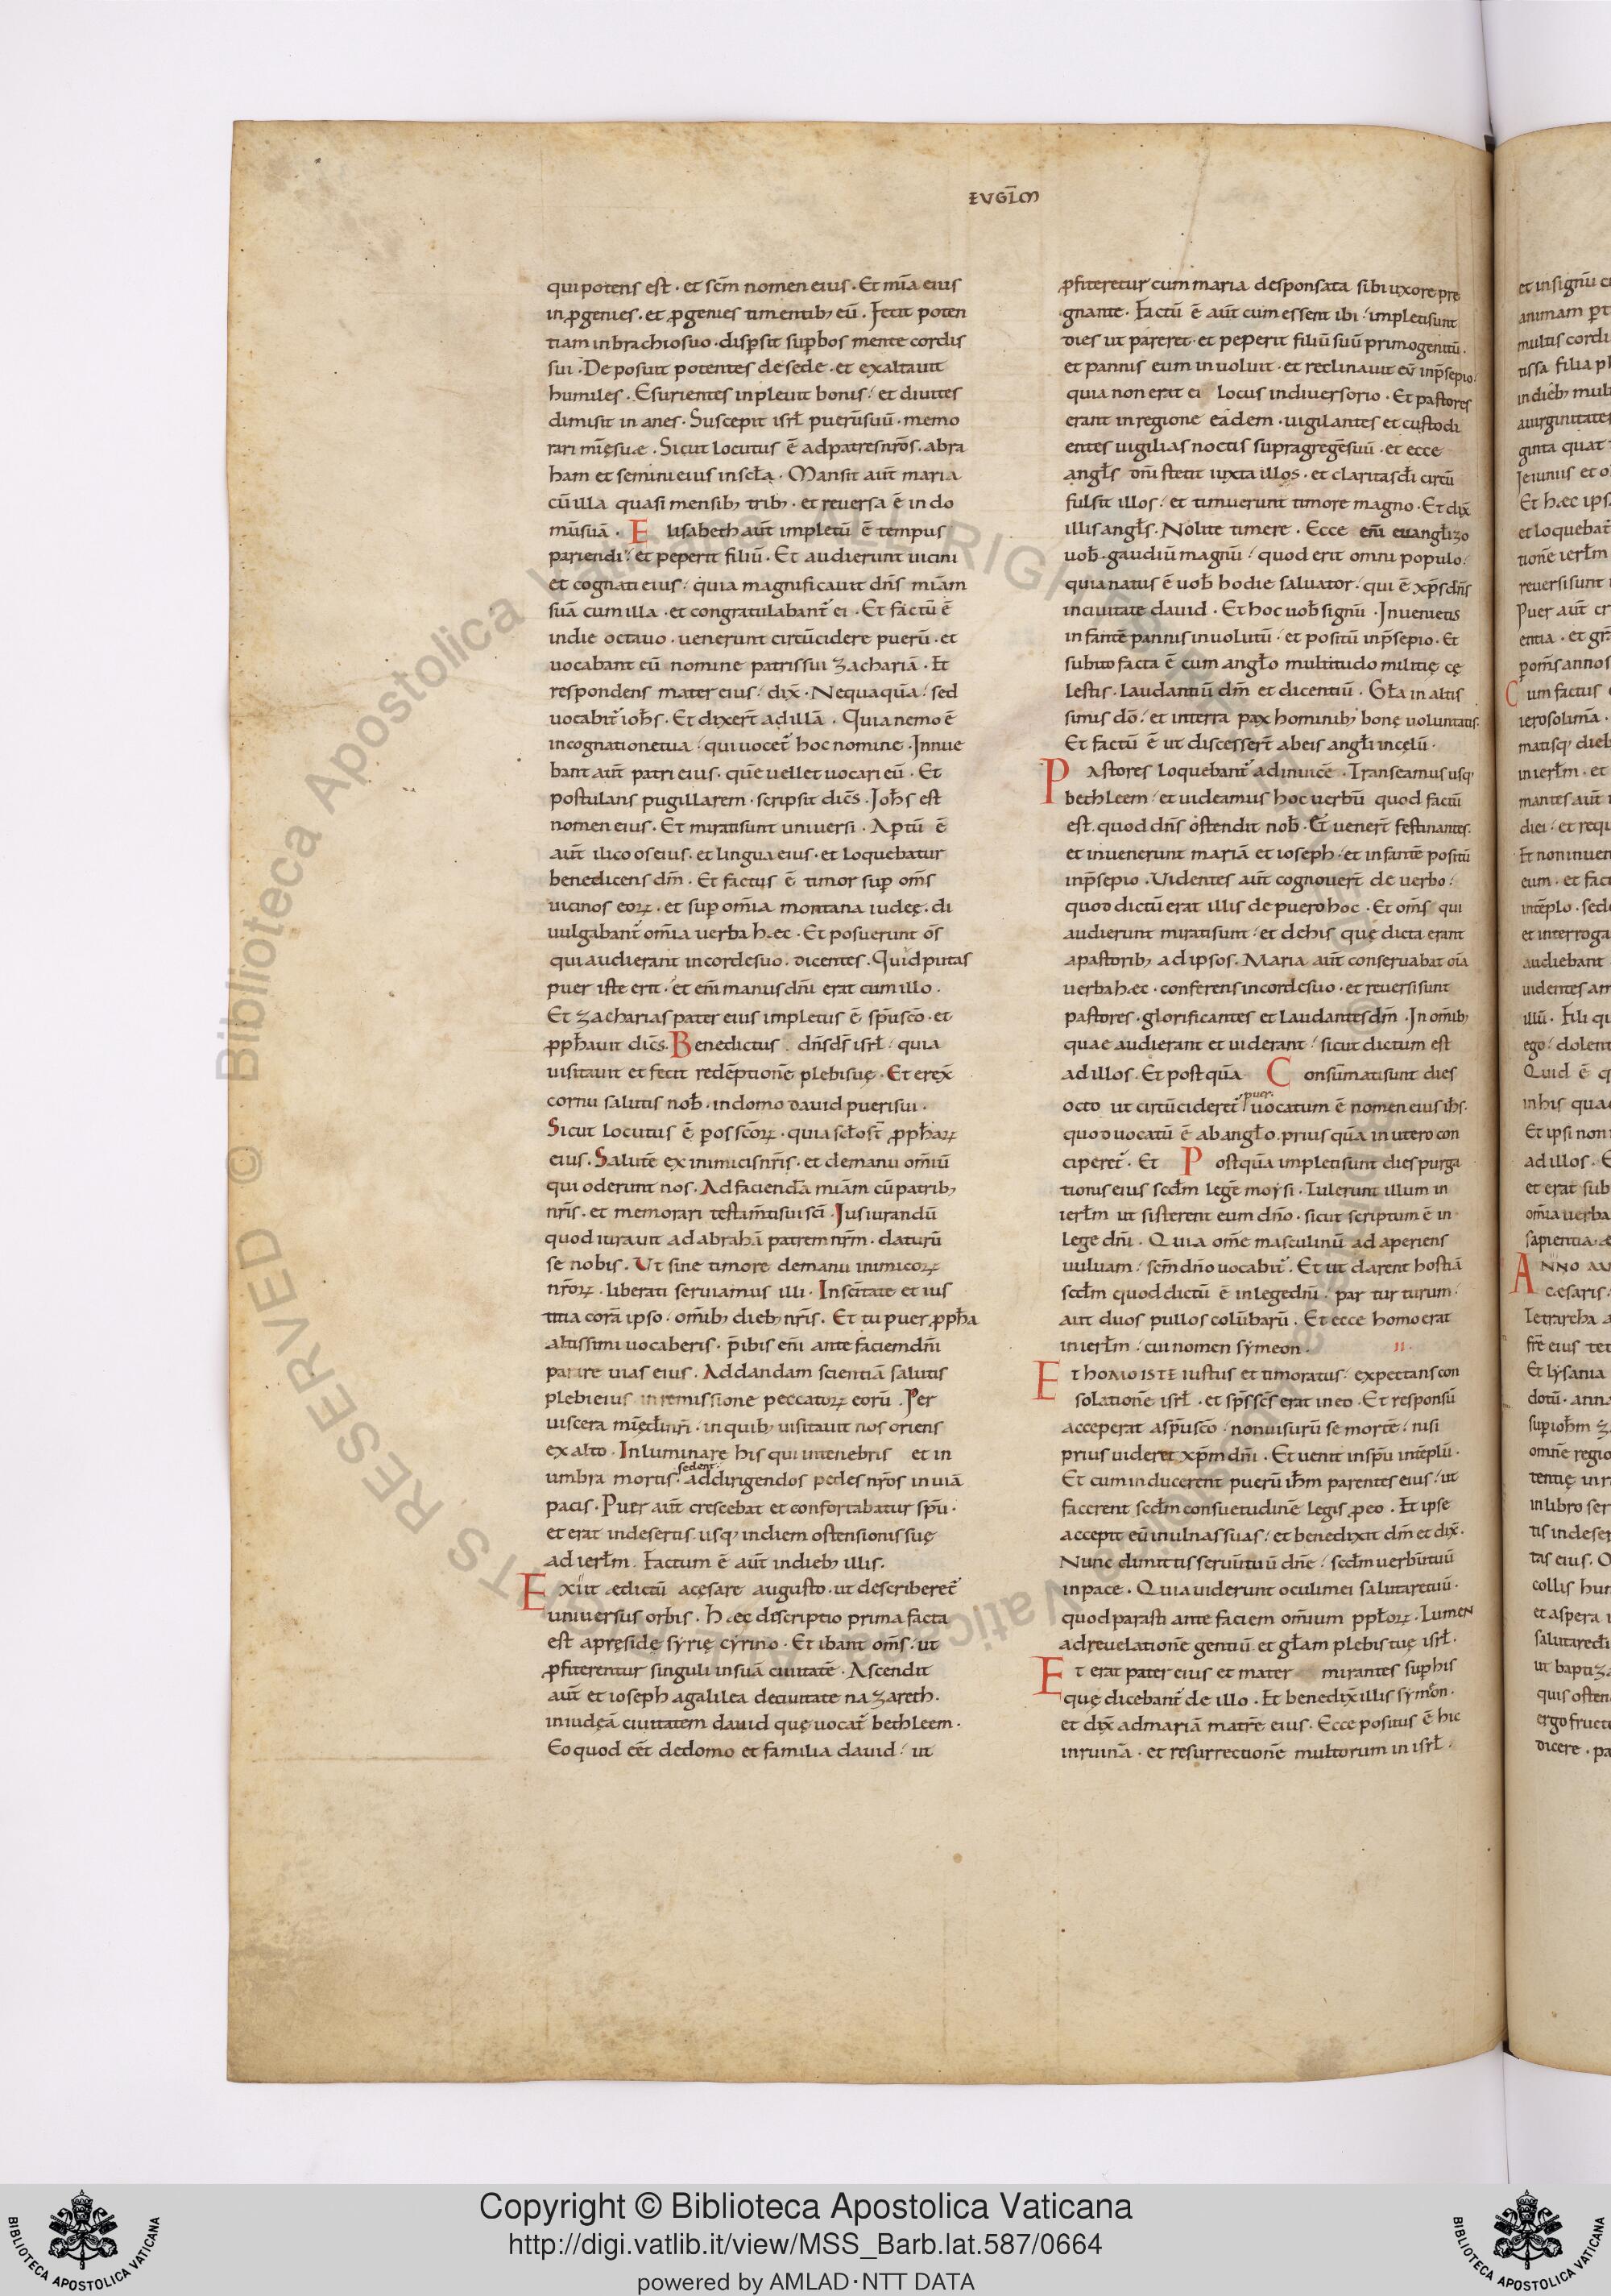 EVGL̄M
qui potens est · et sc̄m nomen eius · Et mīa eius
in ꝓgenies · et ꝓgenies timentib; eū · Fecit poten
tiam in brachio suo · disp̱sit sup̱bos mente cordis
sui · Deposuit potentes de sede · et exaltauit
humiles · Esurientes inpleuit bonis · et diuites
dimisit inanes · Suscepit isrł puerū suū · memo
rari mīę suæ · Sicut locutus ē ad patres nr̄os · abra
ham et semini eius in scła · Mansit aūt maria
cū illa quasi mensib; trib; · et reuersa ē in do
mū suā · Elisabeth aūt impletū ē tempus
pariendi · et peperit filiū · Et audierunt uicini
et cognati eius · quia magnificauit dn̄s miam̄
suā cum illa · et congratulabant̄ ei · Et factū ē
in die octauo · uenerunt circūcidere puerū · et
uocabant eū nomine patris sui zachariā · Et
respondens mater eius · dix̄ · Nequaquā · sed
uocabit̄ ioh̄s · Et dixer̄t ad illā · Quia nemo ē
in cognatione tua · qui uocet̄ hoc nomine · Innue
bant aūt patri eius · quē uellet uocari eū · Et
postulans pugillarem · scripsit dic̄s · Ioh̄s est
nomen eius · Et mirati sunt uniuersi · Ap̱tū ē
aūt ilico os eius · et lingua eius · et loquebatur
benedicens dm̄ · Et factus ē timor sup̱ om̄s
uicinos eoꝝ · et sup̱ om̄ia montana iudeę · di
uulgabant̄ om̄ia uerba hæc · Et posuerunt om̄s
qui audierant in corde suo · dicentes · Quid putas
puer iste erit · et en̄i manus dn̄i erat cum illo ·
Et zacharias pater eius impletus ē sp̄u sc̄o · et
ꝓph̄auit dic̄s · Benedictus dn̄s d̄s isrł · quia
uisitauit et fecit redēptionē plebis suę · Et erex̄
cornu salutis nob̄ · in domo dauid pueri sui ·
Sicut locutus ē p̱ os sc̄oꝝ · qui a scło st̄ ꝓph̄aꝝ
eius · Salutē ex inimicis nr̄is · et de manu om̄iū
qui oderunt nos · Ad faciendā miam̄ cū patrib;
nr̄is · et memorari testam̄ti sui sc̄i · Iusiurandū
quod iurauit ad abrahā patrem nr̄m · daturū
se nobis · Ut sine timore de manu inimicoꝝ
nr̄oꝝ · liberati seruiamus illi · In sc̄itate et ius
titia corā ipso · om̄ib; dieb; nr̄is · Et tu puer ꝓph̄a
altissimi uocaberis · p̄ibis en̄i ante faciem dn̄i
parare uias eius · Ad dandam scientiā salutis
plebi eius in remissione peccatoꝝ eorū · Per
uiscera mīę dī nr̄i · in quib; uisitauit nos oriens
ex alto · Inluminare his qui in tenebris et in
umbra mortis · sedent · ad dirigendos pedes nr̄os in uiā
pacis · Puer aūt crescebat et confortabatur sp̄u ·
et erat in desertis usq; in diem ostensionis suę
ad ierłm · Factum ē aūt in dieb; illis ·
Exiit ædictū a cęsare augusto · ut describeret̄
uniuersus orbis · Hæc discriptio prima facta
est a pręside syrię cyrino · Et ibant om̄s · ut
ꝓfiterentur singuli in suā ciuitatē · Ascendit
aūt et ioseph a galilea de ciuitate nazareth ·
in iudęā ciuitatem dauid quę uocat̄ bethleem ·
Eo quod eēt de domo et familia dauid · ut
ꝓfiteretur cum maria desponsata sibi uxore pre
gnante · Factū ē aūt cum essent ibi · impleti sunt
dies ut pareret · et peperit filiū suū primogenitū ·
et pannis eum inuoluit · et reclinauit eū in p̄sepio ·
quia non erat ei locus in diuersorio · Et pastores
erant in regione eadem · uigilantes et custodi
entes uigilias noctis supra gregē suū · et ecce
angłs dn̄i stetit iuxta illos · et claritas dī circū
fulsit illos · et timuerunt timore magno · Et dix̄
illis angłs · Nolite timere · Ecce en̄i euangłizo
uob̄ · gaudiū magnū · quod erit omni populo ·
quia natus ē uob̄ hodie saluator · qui ē xp̄s dn̄s
in ciuitate dauid · Et hoc uob̄ signū · Inuenietis
infantē pannis inuolutū · et positū in p̄sepio · Et
subito facta ē cum angło multitudo militię cę
lestis · laudantiū dm̄ et dicentiū · Gła in altis
simis dō · et in terra pax hominib; bonę uoluntatis ·
Et factū ē ut discesser̄t ab eis angłi in cęlū ·
Pastores loquebant̄ ad inuicē · Transeamus usq;
bethleem · et uideamus hoc uerbū quod factū
est · quod dn̄s ostendit nob̄ · Et uener̄t festinantes ·
et inuenerunt mariā et ioseph · et infantē positū
in p̄sepio · Uidentes aūt cognouer̄t de uerbo ·
quod dictū erat illis de puero hoc · Et om̄s qui
audierunt mirati sunt · et de his quę dicta erant
a pastorib; ad ipsos · Maria aūt conseruabat oīa
uerba hæc · conferens in corde suo · et reuersi sunt
pastores · glorificantes et laudantes dm̄ · In om̄ib;
quae audierant et uiderant · sicut dictum est
ad illos · Et postquā Consūmati sunt dies
octo ut circūcideret̄ puer · uocatum ē nomen eius ih̄s ·
quod uocatū ē ab angło · prius quā in utero con
ciperet̄ · Et Postquā impleti sunt dies purga
tionis eius scd̄m legē moysi · Tulerunt illum in
ierłm ut sisterent eum dn̄o · sicut scriptum ē in
lege dn̄i · Quia om̄e masculinū ad aperiens
uuluam · sc̄m dn̄o uocabit̄ · Et ut darent hostiā
scd̄m quod dictū ē in lege dn̄i · par turturum ·
aut duos pullos colūbarū · Et ecce homo erat
in ierłm · cui nomen symeon · II ·
Et HOMO ISTE iustus et timoratus · expectans con
solationē isrł · et sp̄s sc̄s erat in eo · Et responsū
acceperat a sp̄u sc̄o · non uisurū se mortē · nisi
prius uideret xp̄m dn̄i · Et uenit in sp̄u in tēplū ·
Et cum inducerent puerū ih̄m parentes eius · ut
facerent scd̄m consuetudinē legis ꝓ eo · Et ipse
accepit eū in ulnas suas · et benedixit dm̄ et dix̄ ·
Nunc dimittis seruū tuū dn̄e · scd̄m uerbū tuū
in pace · Quia uiderunt oculi mei salutare tuū ·
quod parasti ante faciem om̄ium ppłoꝝ · Lumen
ad reuelationē gentiū et głam plebis tuę isrł ·
Et erat pater eius et mater mirantes sup̱ his
quę dicebant̄ de illo · Et benedix̄ illis symeon ·
et dix̄ ad mariā matrē eius · Ecce positus ē hic
in ruinā · et resurrectionē multorum in isrł ·
© Biblioteca Apostolica Vaticana ALL RIGHTS RESERVED
Copyright © Biblioteca Apostolica Vaticana
http://digi.vatlib.it/view/MSS_Barb.lat.587/0664
powered by AMLAD·NTT DATA
BIBLIOTECA APOSTOLICA VATICANA
BIBLIOTECA APOSTOLICA VATICANA